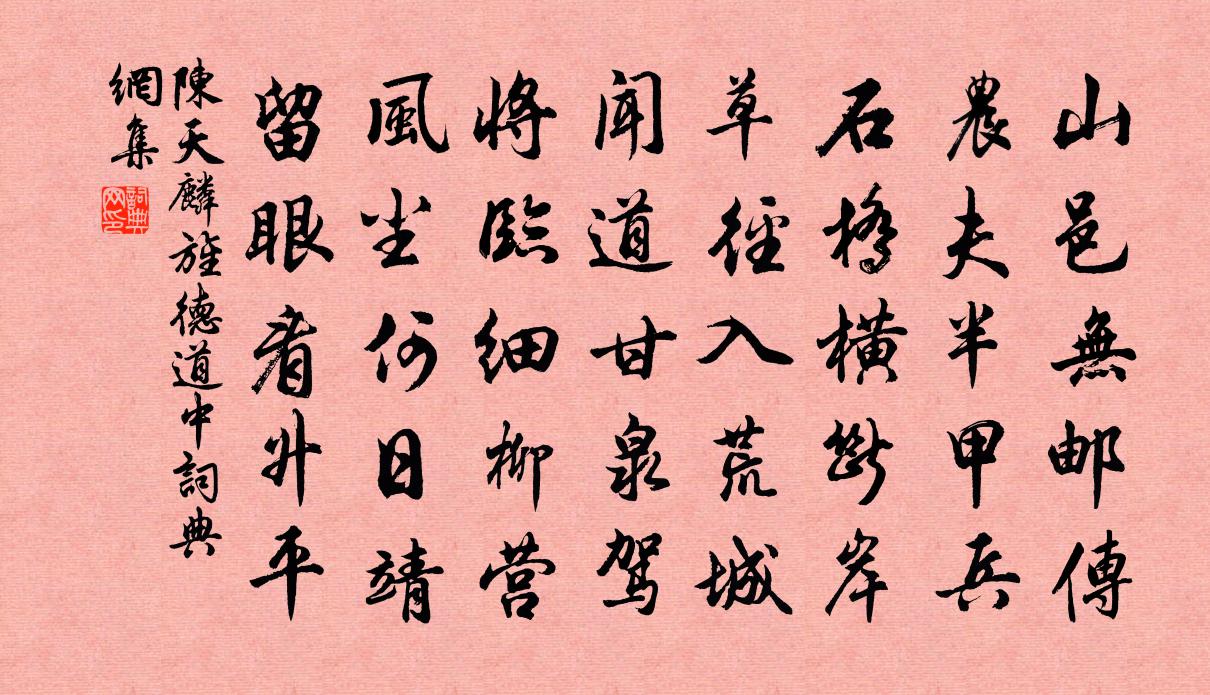 山邑無邮傳
農夫半甲兵
石橋橫斷岸
草徑入荒城
聞道甘泉駕
將臨細柳营
風尘何日靖
留眼看升平
陳天麟旌德道中詞典
網集
詞典
网印